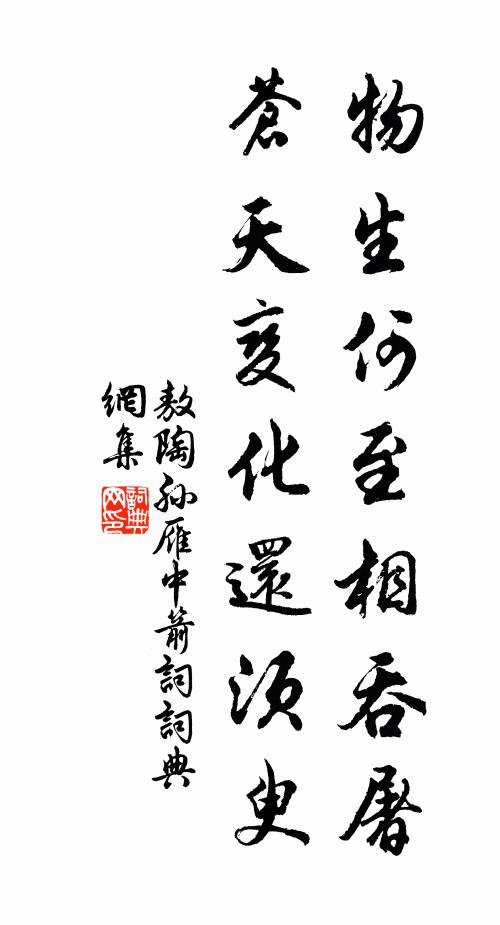 物生何至相吞屠
蒼天变化還須臾
敖陶孙雁中箭詞詞典
網集
詞典
网印